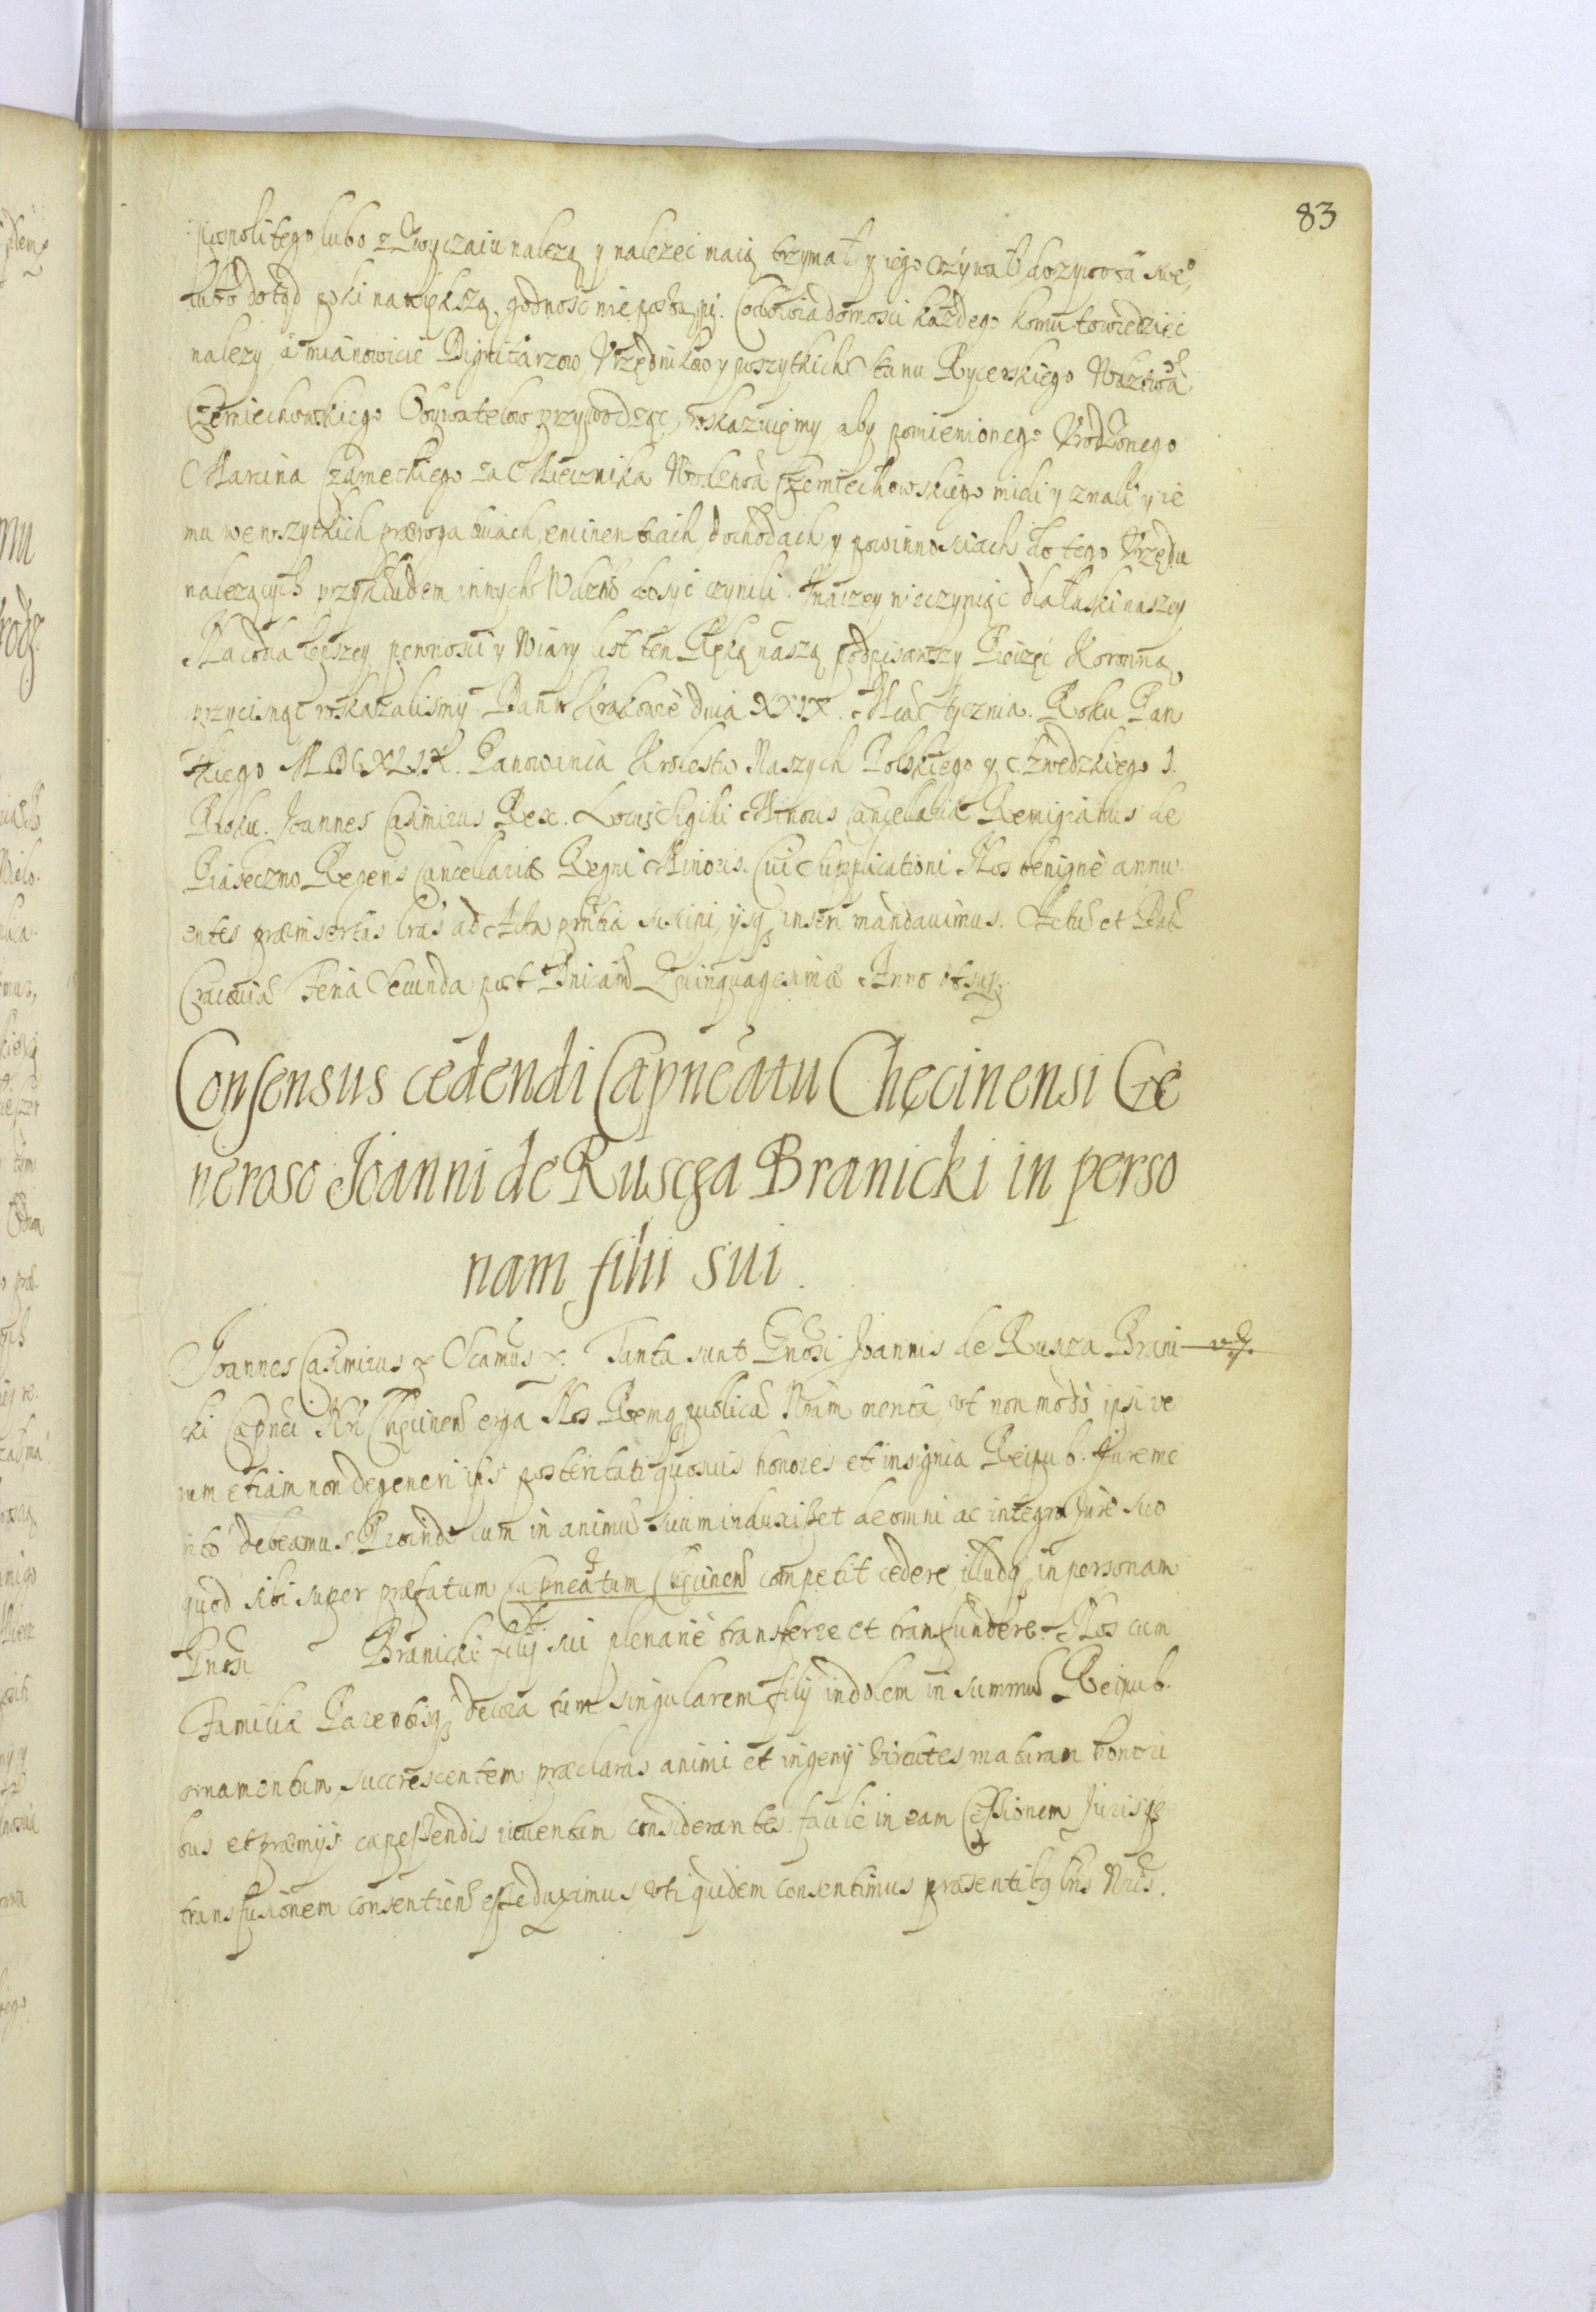 83
pospolitego lubo z Zwyczaiu nalezą y nalezeć maią trzymał y iego vżywał do zywota sweo,
lubo dotąd poki na większą godnosc nie postąpi. Co do wiadomosci każdego komu to wiedzieć
nalezy, á mianowicie Dignitarzow, Vrzędnikow y wszytkich Stanu Rycerskiego Wdztwa
Czerniechowskiego Obywatelow przywodząc, roskazuięmy, aby pomienionego Vrodzonego
Marcina Czarneckiego za Miecznika Wdztwa Czerniechowskiego mieli y znali y ie
mu we wszytkich praerogatiuach, eminentiach, dochodach y powinnosciach do tego Vrzędu
nalezących przykładem innych Wdztw dosyć czynili. Inaczey nie czyniąc dla łaski naszey
Na co dla lepszey pewnosci y Wiary list ten Ręką naszą podpisawszy Pieczęć Koronną
przycisnąć roskazalismy. Dan w Krakowie dnia XXIX. Mca Stycznia. Roku Pan
skiego MDCXLIX. Panowania Krolestw Naszych Polskiego y Szwedzkiego I.
Roku. Joannes Casimirus Rex. Locus Sigilli Minoris Cancellariae Remigianus de
Piaseczno Regens Cancellariae Regni Minoris. Cui Supplicationi Nos benignè annu
entes praeinsertas lras ad Acta pntia suscipi, ijsq inseri mandauimus. Actū et Dat
Cracouiae Feria Secunda post Dnicam Quinquagesimae Anno vt sup.
Consensus cedendi Capneatu Chęcinensi Ge
neroso Joanni de Ruscza Branicki in perso
nam filii sui.
Joannes Casimirus &c Scamus &c. Tanta sunt Gnosi Joannis de Rusza Brani
cki Capnei Nri Chęcinen erga Nos Remq publicā Nram merita, vt non modò ipsi ve
rum etiam non degeneri ipsi posteritati quosuis honores et insignia Reipub. Jure me
ritò debeamus. Proinde cum in animū suum induxisset de omni ac integro Jure suo
quod sibi super praefatum Capneatum Chęcinen competit cedere, illudq in personam
Gnosi Branicki filij sui plenariè transferre et transfundere. Nos cum
Familiae Parentisq decora tum singularem filij indolem in summū Reipub.
ornamentum succrescentem praeclaras animi et ingenij virtutes, maturam honori
bus et praemijs capessendis iuuentam considerantes facile in eam Cessionem Jurisq
transfusionem consentiend esse duximus, vti quidem consentimus praesentibq lris Nris.